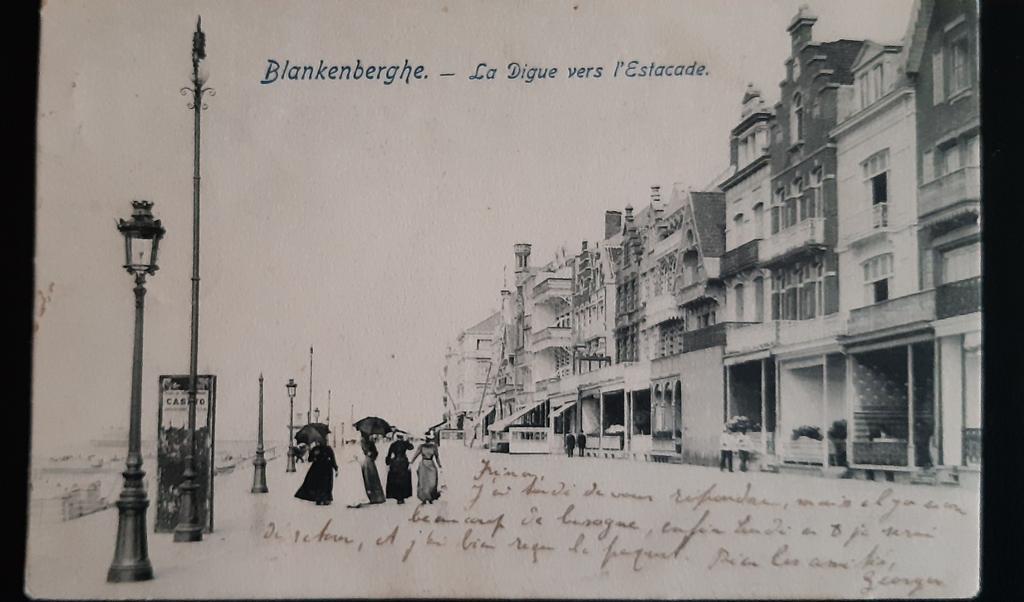 Blankenberghe. – La Digue vers l'Estacade.
CASINO
J'ai tardé de vous repondre, mais il y a eu
beaucoup de besogne, enfin lundi en 8 je serai
de retour, et j'ai bien reçu le paquet. Bien les amitiés,
Georges